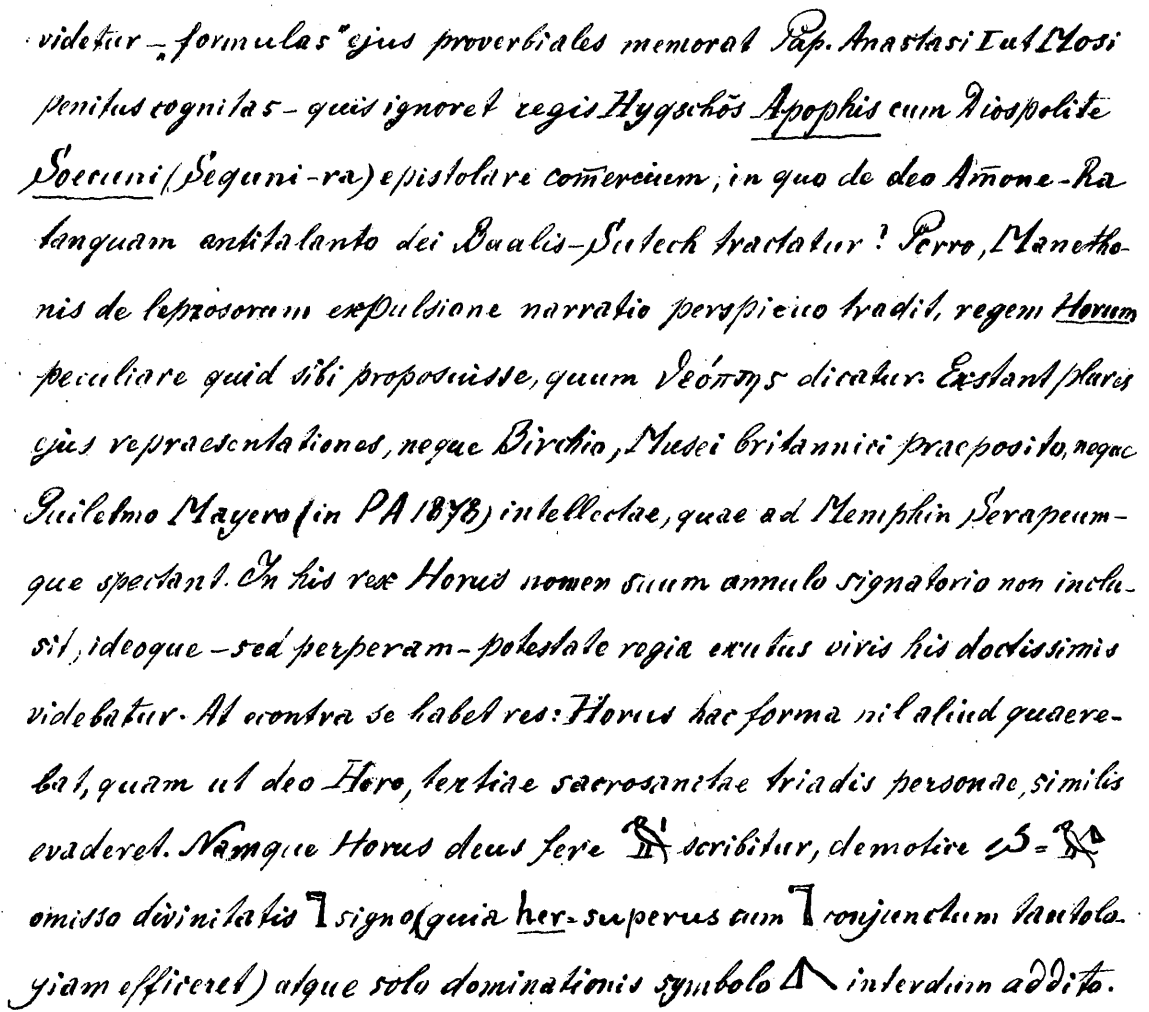 videtur – „formulas" ejus proverbiales memorat Pap. Anastasi I ut Mosi
penitus cognitas – quis ignoret regis Hyqschôs Apophis cum Diospolite
Soecuni (Sequni-ra) epistolare com̅ercium, in quo de deo Am̅one-Ra
tanquam antitalanto dei Baalis-Sutech tractatur? Porro, Manetho-
nis de leprosorum expulsione narratio perspicuo tradit, regem Horum
peculiare quid sibi proposuisse, quum θεόπτης dicatur. Exstant plures
ejus repraesentationes, neque Birchio, Musei britannici praeposito, neque
Guilelmo Mayero (in PA 1878) intellectae, quae ad Memphin Serapeum-
que spectant. In his rex Horus nomen suum annulo signatorio non inclu-
sit, ideoque – sed perperam – potestate regia exutus viris his doctissimis
videbatur. At econtra se habet res: Horus hac forma nil aliud quaere-
bat, quam ut deo Horo, tertiae sacrosanctae triadis personae, similis
evaderet. Namque Horus deus fere scribitur, demotice =
omisso divinitatis signo (quia her = superus cum conjunctum tautolo-
giam efficeret) atque solo dominationis symbolo interdum addito.